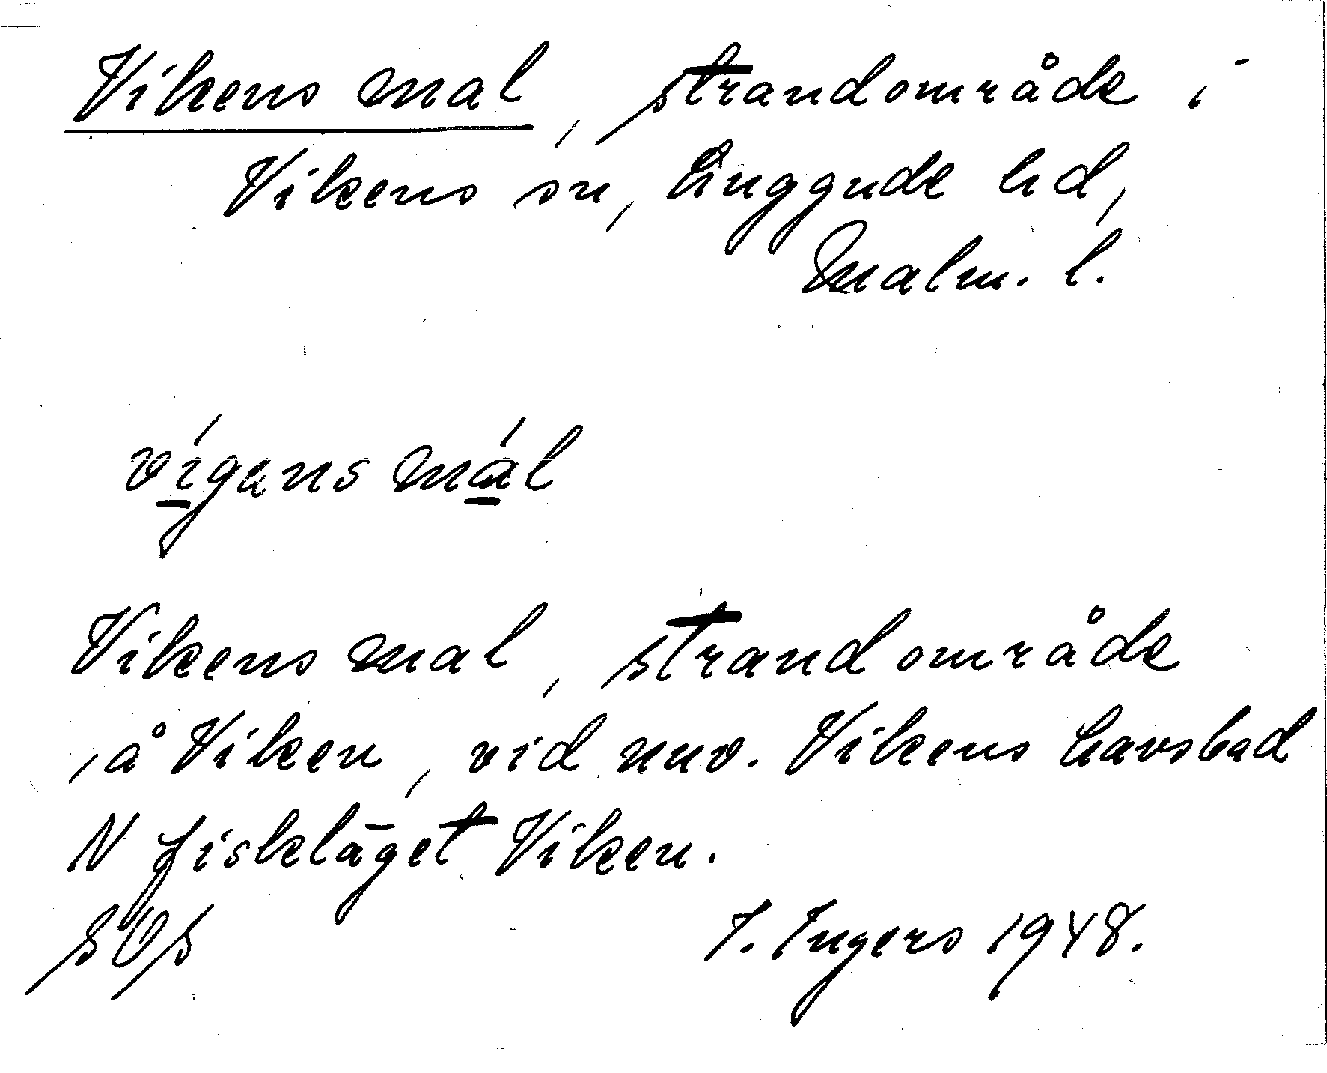 Vikens mal, strandområde i
Vikens sn, Luggude hd,
Malm. l.
vígans mál
Vikens mal, strandområde
å Viken, vid nuv. Vikens havsbad
N fiskläget Viken.
SOS I. Ingers 1948.